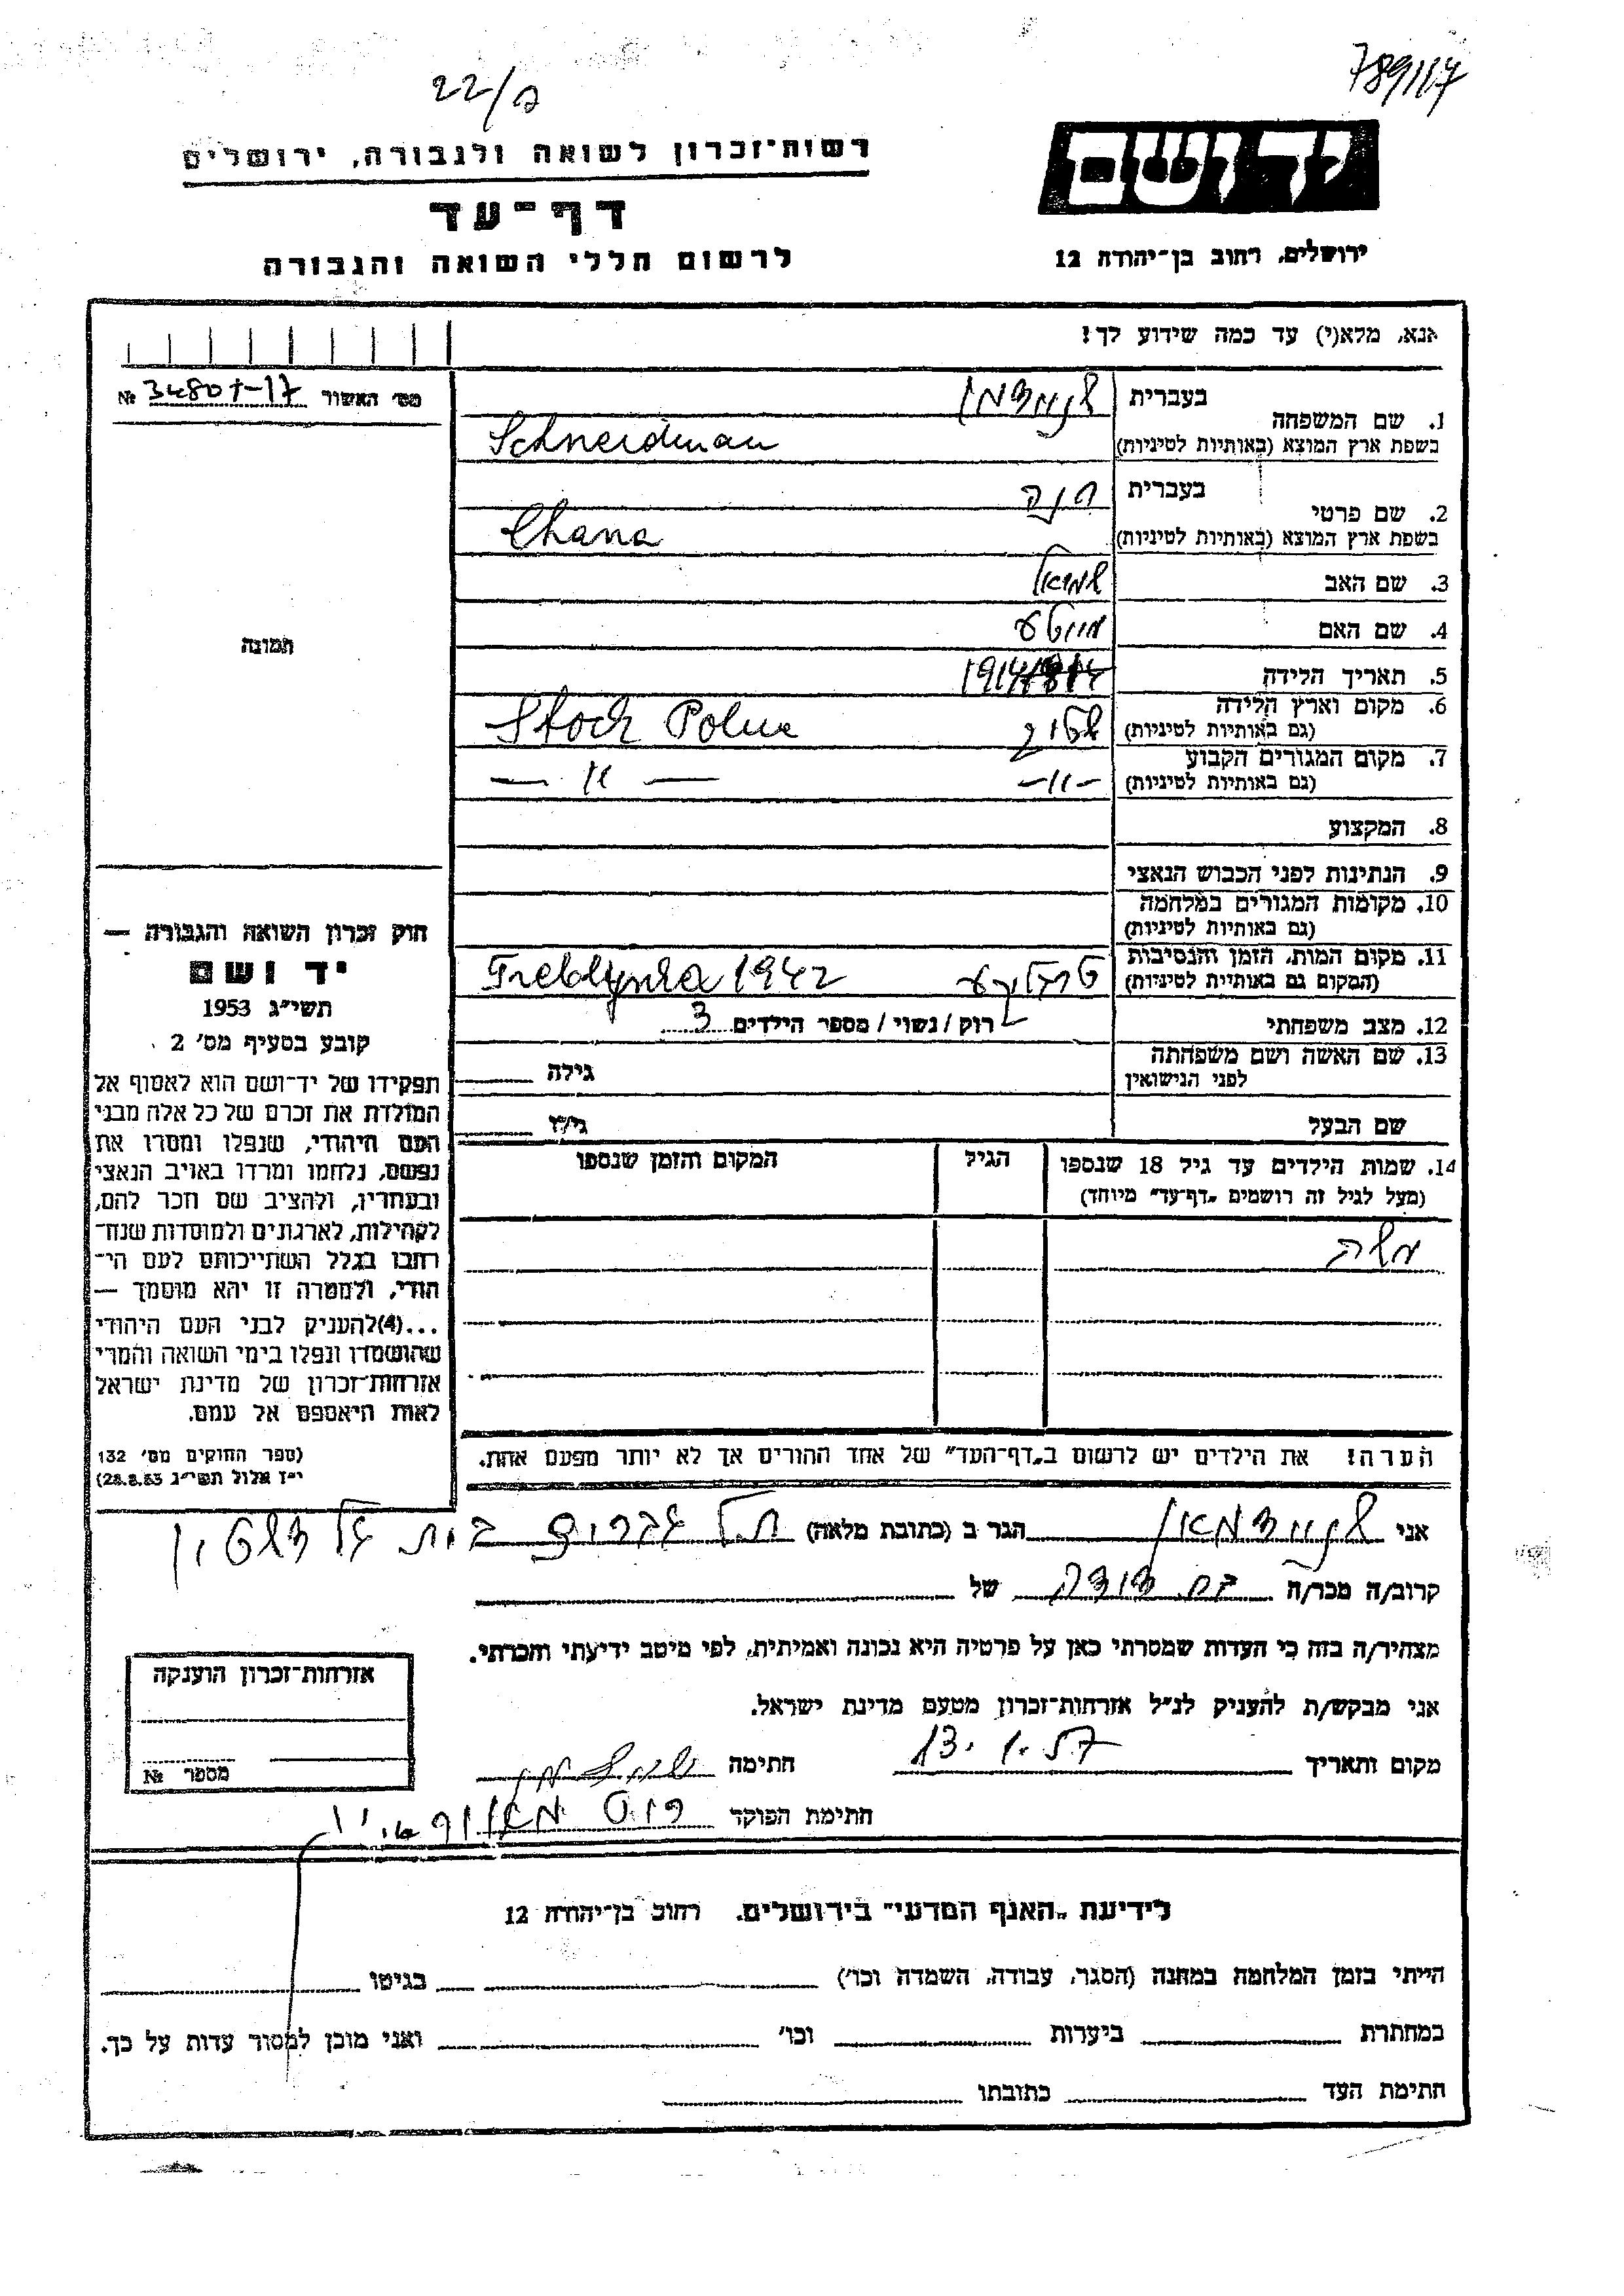 789/17
22/ח
יד ושם
ירושלים, רחוב בן־יהודה 12
רשות־זכרון לשואה ולגבורה, ירושלים
דף־עד
לרשום חללי השואה והגבורה
אנא, מלא(י) עד כמה שידוע לך!
מס׳ האשור № 34801-17
1. שם המשפחה
בעברית שניידמן
בשפת ארץ המוצא (באותיות לטיניות) Schneidman
2. שם פרטי
בעברית חנה
בשפת ארץ המוצא (באותיות לטיניות) Chana
3. שם האב שמואל
4. שם האם
5. תאריך הלידה 1914
6. מקום וארץ הלידה
(גם באותיות לטיניות) Stock Polne
7. מקום המגורים הקבוע
(גם באותיות לטיניות) —״— — ״ —
8. המקצוע
9. הנתינות לפני הכבוש הנאצי
10. מקומות המגורים במלחמה
(גם באותיות לטיניות)
11. מקום המות, הזמן והנסיבות
(המקום גם באותיות לטיניות) טרבלינקע Treblynka 1942
12. מצב משפחתי רוק / נשוי / מספר הילדים 3
13. שם האשה ושם משפחתה
לפני הנישואין גילה
שם הבעל גילו
14. שמות הילדים עד גיל 18 שנספו הגיל המקום והזמן שנספו
(מעל לגיל זה רושמים „דף־עד״ מיוחד)
משה
הערה! את הילדים יש לרשום ב„דף־העד״ של אחד ההורים אך לא יותר מפעם אחת.
תמונה
חוק זכרון השואה והגבורה —
יד ושם
תשי״ג 1953
קובע בסעיף מס׳ 2
תפקידו של יד־ושם הוא לאסוף אל
המולדת את זכרם של כל אלה מבני
העם היהודי, שנפלו ומסרו את
נפשם, נלחמו ומרדו באויב הנאצי
ובעוזריו, ולהציב שם וזכר להם,
לקהילות, לארגונים ולמוסדות שנח־
רבו בגלל השתייכותם לעם הי־
הודי, ולמטרה זו יהא מוסמך —
...(4)להעניק לבני העם היהודי
שהושמדו ונפלו בימי השואה והמרי
אזרחות־זכרון של מדינת ישראל
לאות היאספם אל עמם.
(ספר החוקים מס׳ 132
י״ז אלול תשי״ג 28.8.53)
אני שניידמאן הגר ב (כתובת מלאה) בית
קרוב/ה מכר/ה בת דודה של
מצהיר/ה בזה כי העדות שמסרתי כאן על פרטיה היא נכונה ואמיתית, לפי מיטב ידיעתי והכרתי.
אני מבקש/ת להעניק לנ״ל אזרחות־זכרון מטעם מדינת ישראל.
מקום ותאריך 13.1.57 חתימה שניידמן
חתימת הפוקד
אזרחות־זכרון הוענקה
מספר №
לידיעת „האגף המדעי״ בירושלים. רחוב בן־יהודה 12
הייתי בזמן המלחמה במחנה (הסגר, עבודה, השמדה וכו׳) בגיטו
במחתרת ביערות וכו׳ ואני מוכן למסור עדות על כך.
חתימת העד כתובתו